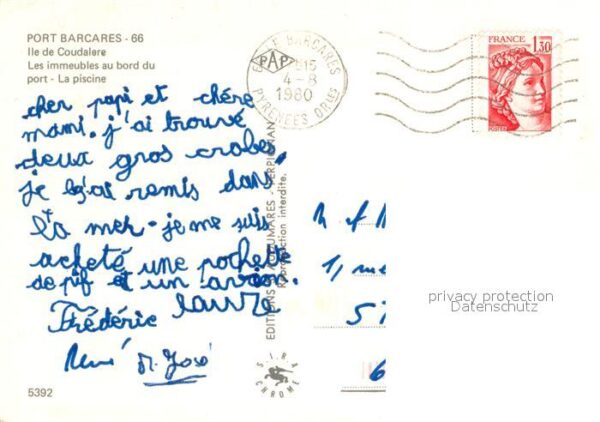 PORT BARCARES - 66
Ile de Coudalere
Les immeubles au bord du
port - La piscine
cher papi et chére
mami. j'ai trouvé
deux gros crabes.
je les ai remis dans
la mer. je me suis
acheté une pochette
de pif et un avion.
Frédéric laure
René M. José
5392
BARCARES
PAP
15
4-8
1980
PYRENEES ORIES
FRANCE 1,30
EDITIONS
Reproduction interdite.
SIRA
CHROME
M et M
1, rue
6
privacy protection
Datenschutz